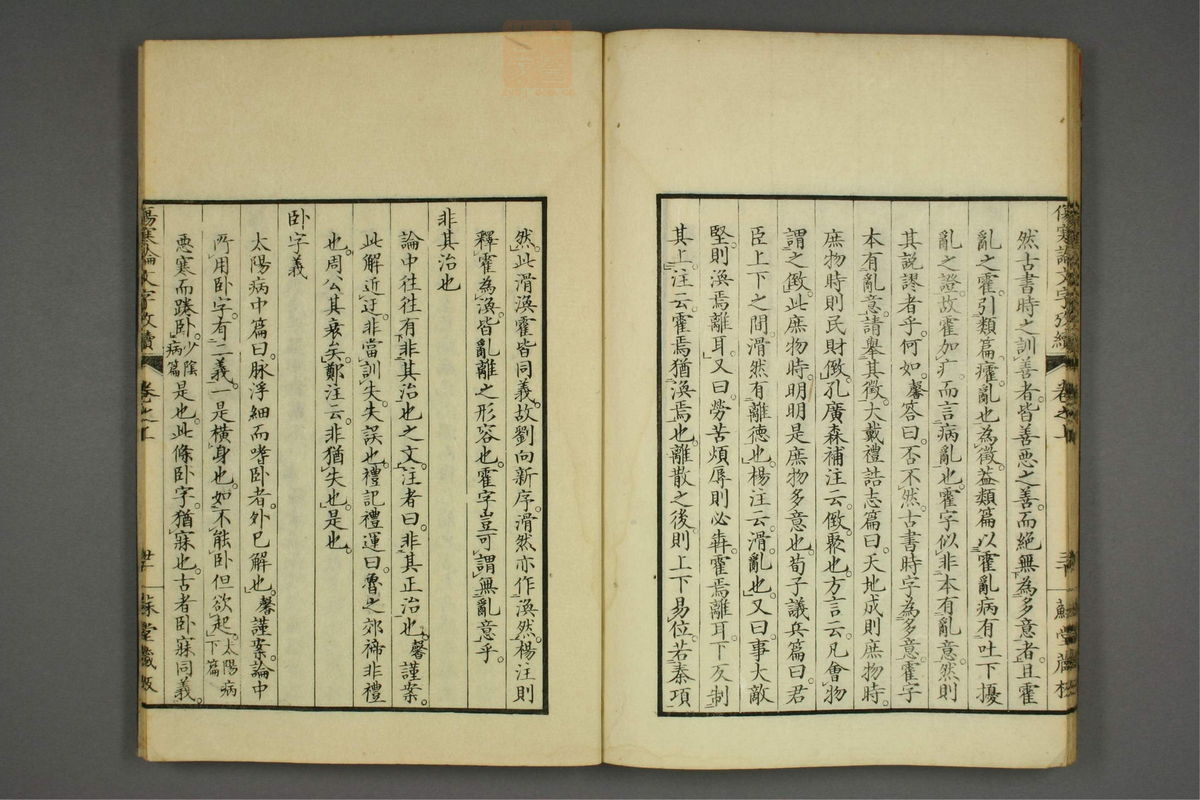 然古書時之訓善者皆善惡之善而絕無為多意者且霍
亂之霍引類篇癨亂也為徵益類篇以霍亂病有吐下擾
亂之證故霍加疒而言病亂也霍字似非本有亂意然則
其說謬者乎何如馨答曰否不然古書時字為多意霍字
本有亂意請舉其徵大戴禮誥志篇曰天地成則庶物時
庶物時則民財傲孔廣森補注云傲聚也方言云凡會物
謂之傲此庶物時明明是庶物多意也荀子議兵篇曰君
臣上下之間滑然有離德也楊注云滑亂也又曰事大敵
堅則渙焉離耳又曰勞苦煩辱則必犇霍焉離耳下反制
其上注云霍焉猶渙焉也離散之後則上下易位若秦項
卷之上
然此滑渙霍皆同義故劉向新序滑然亦作渙然楊注則
釋霍為渙皆亂離之形容也霍字豈可謂無亂意乎
非其治也
論中往往有非其治也之文注者曰非其正治也馨謹案
此解近迂非當訓失失誤也禮記禮運曰魯之郊禘非禮
也周公其衰矣鄭注云非猶失也是也
臥字義
太陽病中篇曰脉浮細而嗜臥者外已解也馨謹案論中
所用臥字有二義一是橫身也如不能臥但欲起太陽病下篇
惡寒而踡臥少陰病篇是也此條臥字猶寐也古者臥寐同義
傷寒論文字攷續
卷之上